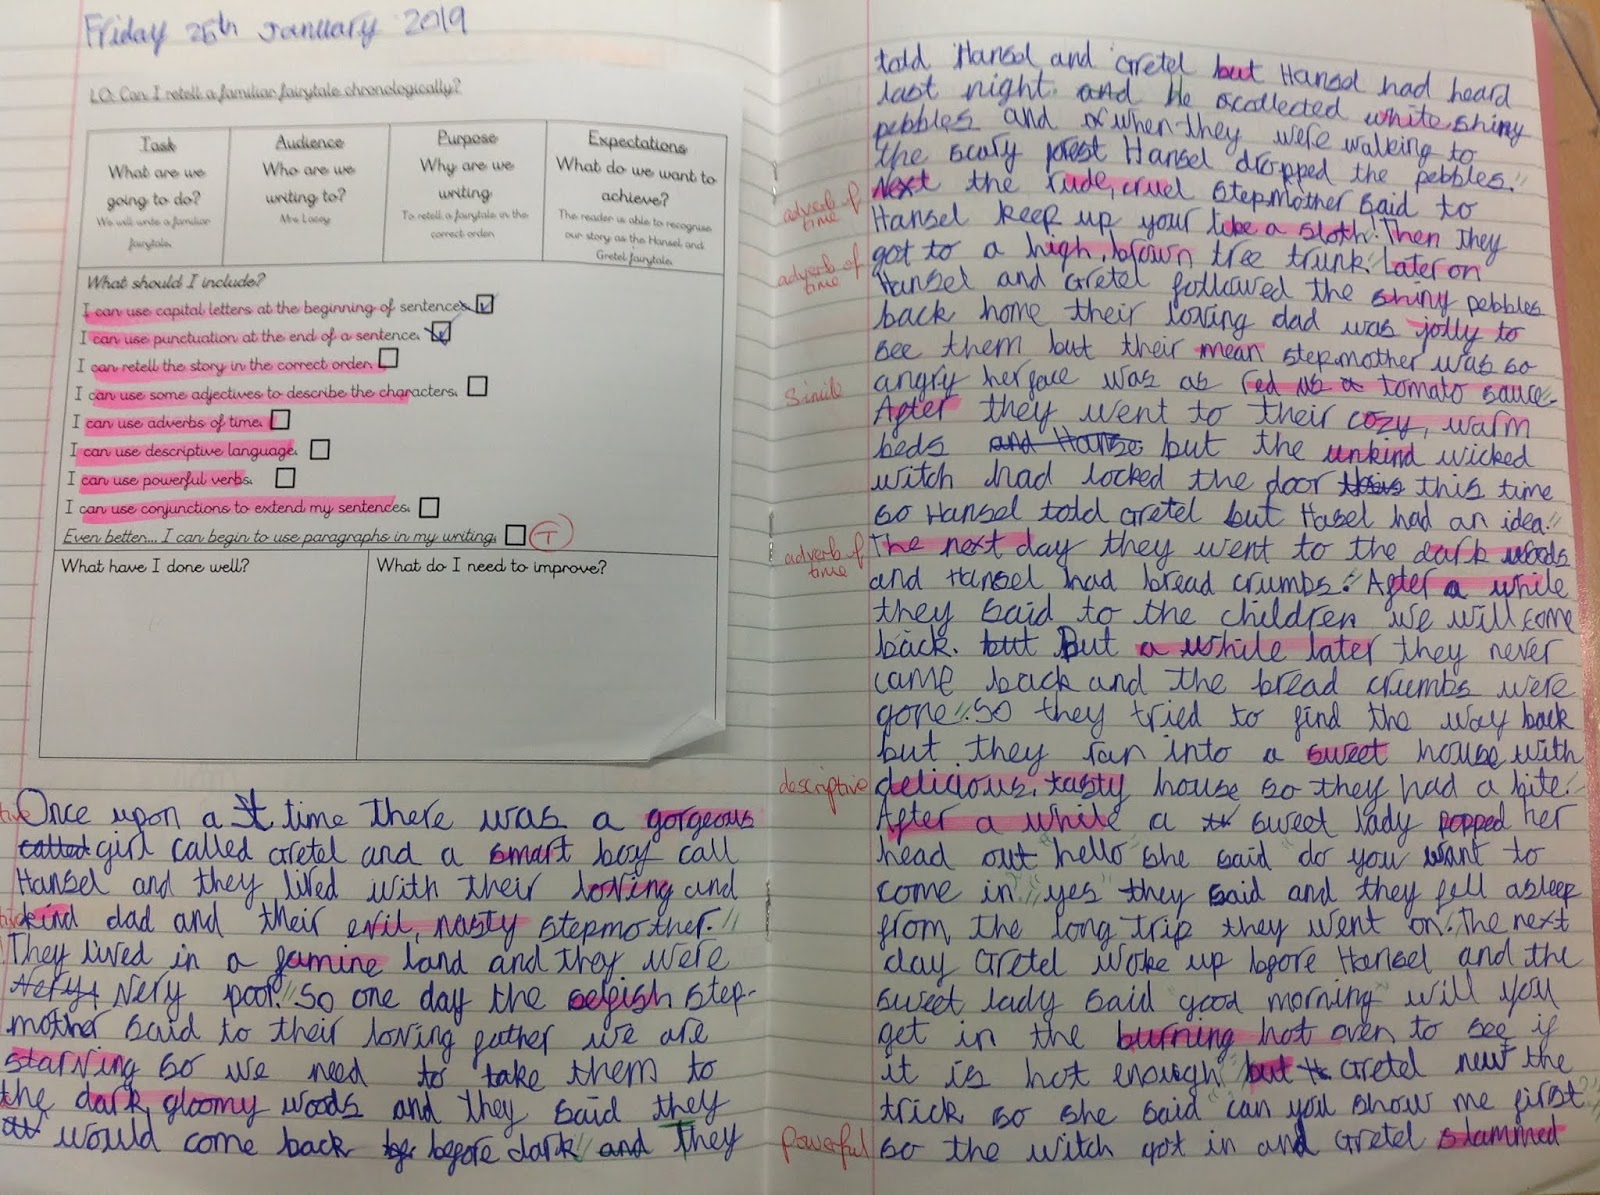 Friday 25th January 2019
LO: Can I retell a familiar fairytale chronologically?
Task
What are we
going to do?
We will write a familiar
fairytale.
Audience
Who are we
writing to?
Mrs Lacey
Purpose
Why are we
writing
To retell a fairytale in the
correct order
Expectations
What do we want to
achieve?
The reader is able to recognise
our story as the Hansel and
Gretel fairytale.
What should I include?
I can use capital letters at the beginning of sentences.
I can use punctuation at the end of a sentence.
I can retell the story in the correct order.
I can use some adjectives to describe the characters.
I can use adverbs of time.
I can use descriptive language.
I can use powerful verbs.
I can use conjunctions to extend my sentences.
Even better... I can begin to use paragraphs in my writing. T
What have I done well?
What do I need to improve?
Once upon a time there was a gorgeous
called girl called Gretel and a smart boy call
Hansel and they lived with their loving and
kind dad and their evil, nasty stepmother.//
They lived in a famine land and they were
Very poor.// So one day the selfish step-
mother said to their loving father we are
starving so we need to take them to
the dark, gloomy woods and they said they
would come back before dark// and They
told Hansel and Gretel but Hansel had heard
last night. and He scollected white shiny
pebbles and when they were walking to
the scary forest Hansel dropped the pebbles.//
adverb of time
Next the rude, cruel stepmother said to
Hansel keep up your like a sloth! Then They
adverb of time
got to a high, brown tree trunk.// Later on
Hansel and Gretel followed the shiny pebbles
back home their loving dad was jolly to
see them but their mean stepmother was so
simile
angry her face was as red as a tomato sauce.
After they went to their cozy, warm
beds and Hanse but the unkind wicked
witch had locked the door this time
so Hansel told Gretel but Hasel had an idea.//
adverb of time
The next day they went to the dark woods
and Hansel had bread crumbs.// After a while
they said to the children we will come
back. but But a while later they never
came back and the bread crumbs were
gone.// So they tried to find the way back
but they ran into a sweet house with
descriptive
delicious, tasty house so they had a bite.//
After a while a sweet lady popped her
head out "hello" she said "do you want to
come in" "yes" they said and they fell asleep
from the long trip they went on.// The next
day Gretel woke up before Hansel and the
sweet lady said "good morning" will you
get in the burning hot oven to see if
it is hot enough" but Gretel new the
trick so she said "can you show me first"//
powerful
so the witch got in and Gretel slammed